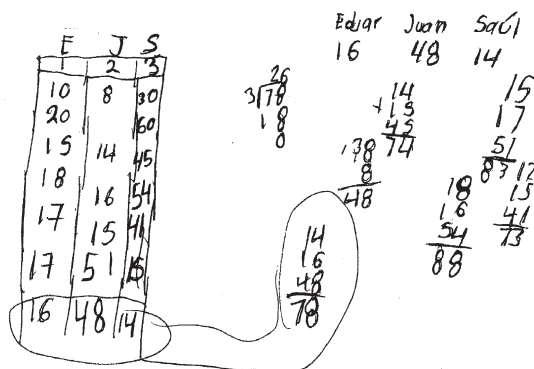 Eduar Juan Saúl
16 48 14
E J S
1 2 3
10 8 30
20 60
15 14 45
18 16 54
17 15 41
17 51 15
16 48 14
26
3 78
18
0
14
+15
45
74
8
48
15
17
51
83
18
16
54
88
12
15
41
73
14
16
48
78